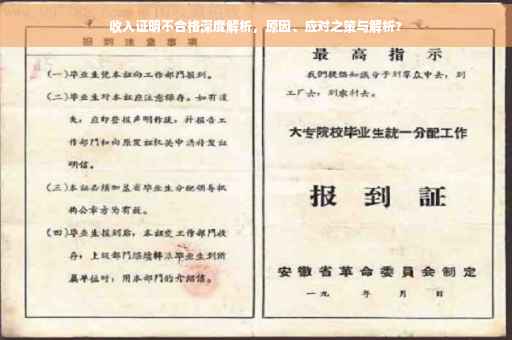 收入证明不合格深度解析，原因、应对之策与解析？
报到注意事项
(一)毕业生凭本证向工作部门报到。
(二)毕业生对本证应注意保存。如有遗
失，应即登报声明作废，并报告工
作部门和向原发证机关申请补发证
明信。
(三)本证必须加盖省毕业生分配领导机
构公章方为有效。
(四)毕业生报到后，本证交工作部门收
存，上级部门继续转派毕业生到所
属单位时，用本部门的介绍信。
最高指示
我们提倡知识分子到群众中去，到
工厂去，到农村去。
大专院校毕业生统一分配工作
报到证
安徽省革命委员会制定
一九 年 月 日